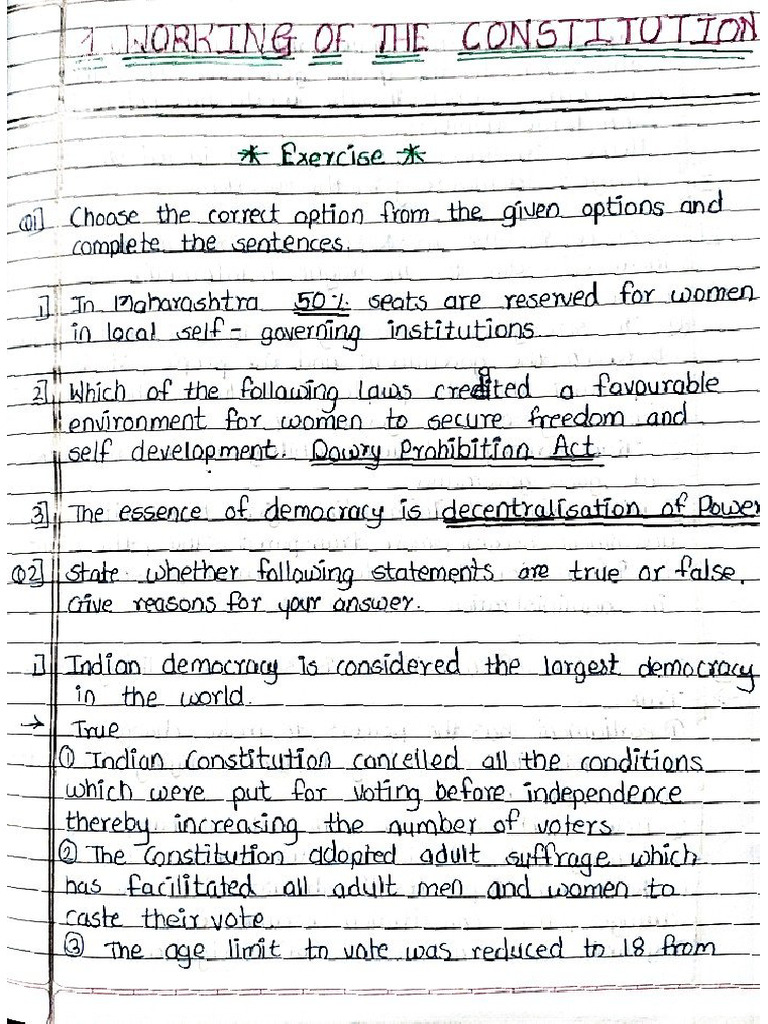 1 WORKING OF THE CONSTITUTION
* Exercise *
Q1] Choose the correct option from the given options and
complete the sentences.
1] In Maharashtra 50% seats are reserved for women
in local self - governing institutions
2] Which of the following laws created a favourable
environment for women to secure freedom and
self development. Dowry Prohibition Act
3] The essence of democracy is decentralisation of Power
Q2] State whether following statements are true or false.
Give reasons for your answer.
1] Indian democracy is considered the largest democracy
in the world.
→ True
① Indian Constitution cancelled all the conditions
which were put for voting before independence
thereby increasing the number of voters
② The Constitution adopted adult suffrage which
has facilitated all adult men and women to
caste their vote.
③ The age limit to vote was reduced to 18 from